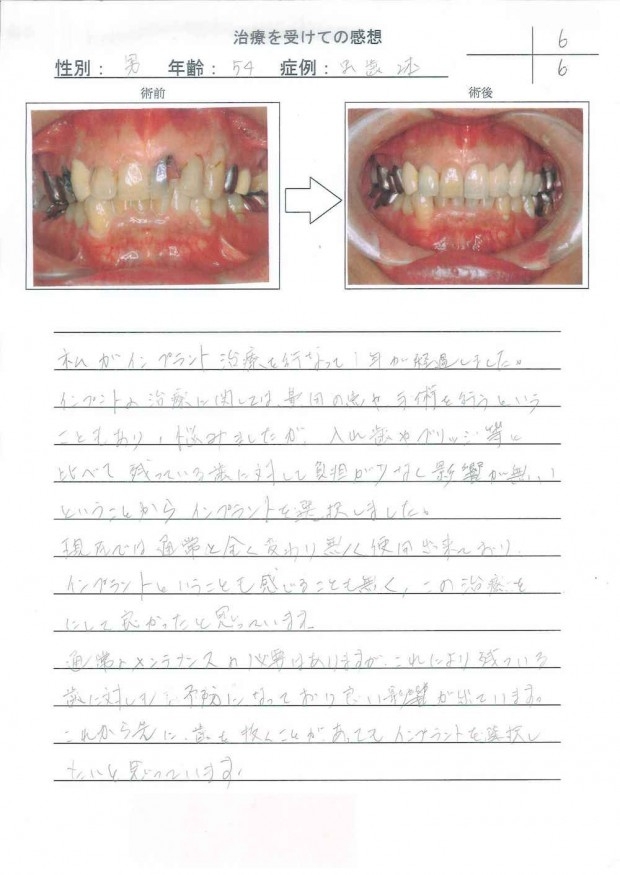 治療を受けての感想
6
6
性別： 男 年齢： 54 症例：
術前
術後
私がインプラント治療を行なって1年が経過しました。
インプラント治療に関しては、費用の出や手術を行うという
こともあり、悩みましたが、入れ歯やブリッジ等と
比べて残っている歯に対して負担が少なく影響が無い
ということからインプラントを選択しました。
現在では通常と全く変わり無く使用出来ており、
インプラントということも感じることも無く、この治療を
にして良かったと思っています。
通常メンテナンスの必要はありますが、これにより残っている
歯に対しても予防になっており良い影響が出ています。
これから先に、歯を抜くことがあってもインプラントを選択し
たいと思っています。